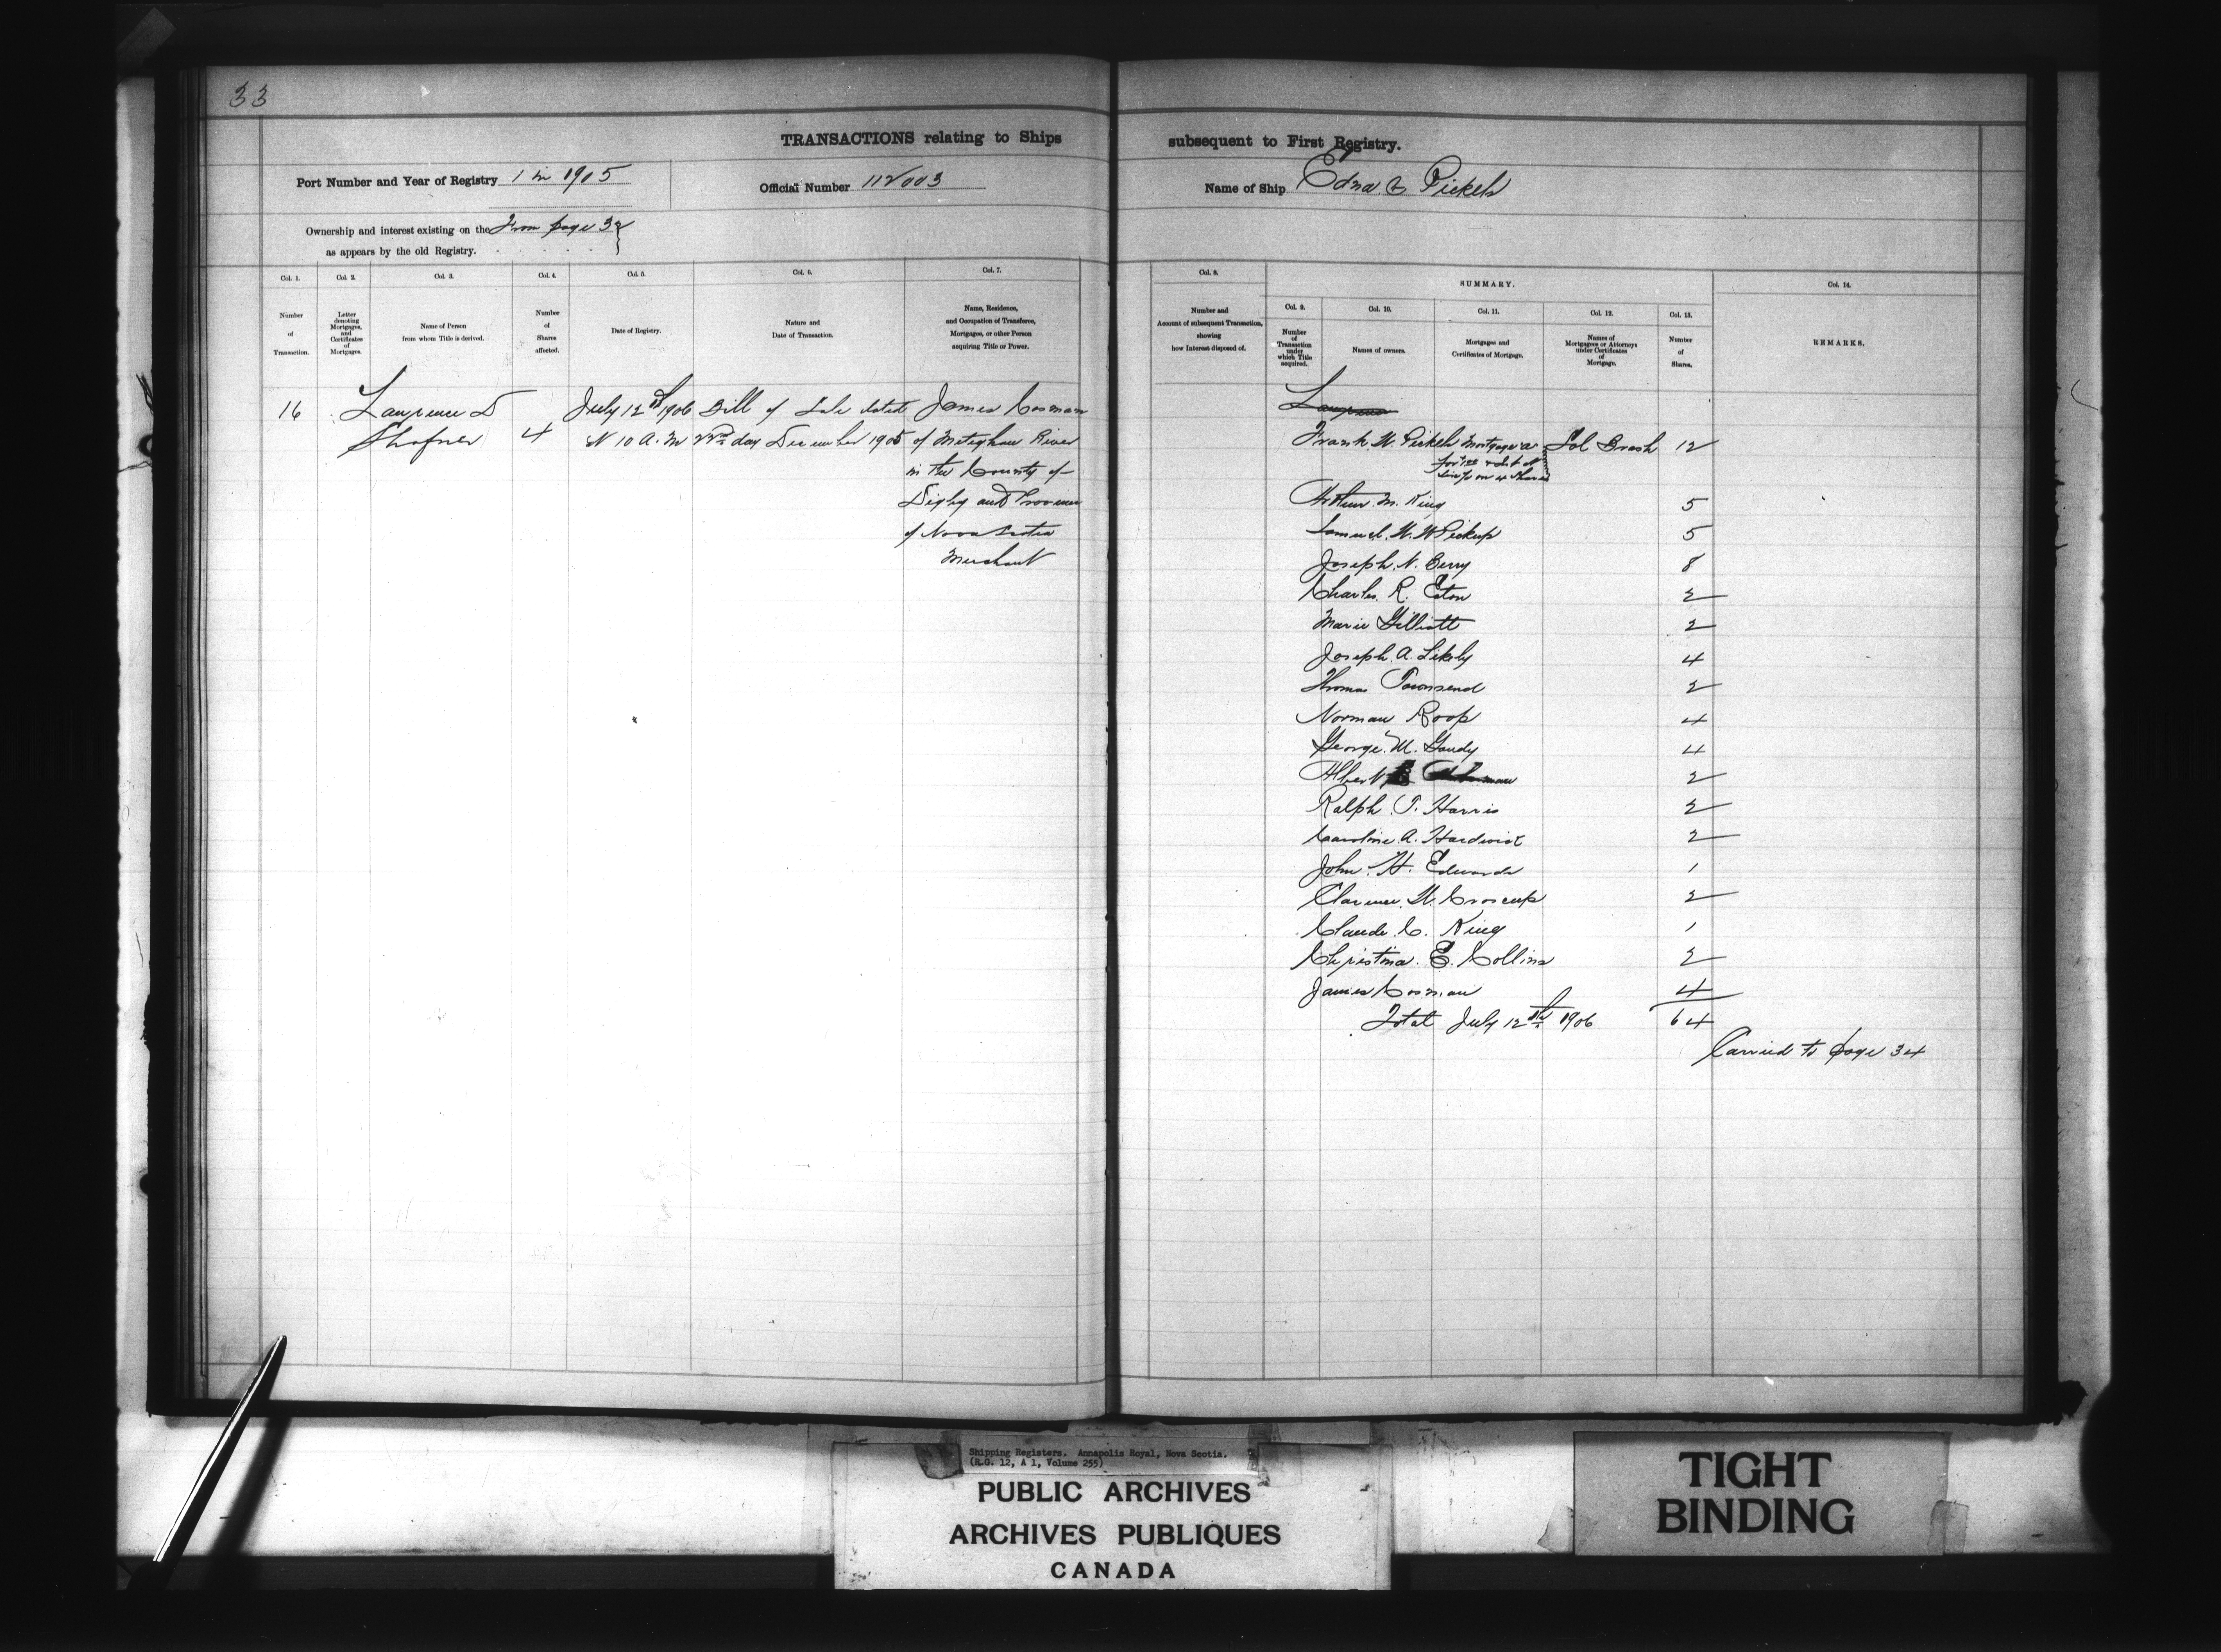 33
TRANSACTIONS relating to Ships subsequent to First Registry.
Port Number and Year of Registry 1 in 1905
Official Number 112003
Name of Ship Edna Pickels
Ownership and interest existing on the From page 32
as appears by the old Registry.
Col. 1.
Number
of
Transaction.
Col. 2.
Letter
denoting
Mortgages,
and
Certificates
of
Mortgages.
Col. 3.
Name of Person
from whom Title is derived.
Col. 4.
Number
of
Shares
affected.
Col. 5.
Date of Registry.
Col. 6.
Nature and
Date of Transaction.
Col. 7.
Name, Residence,
and Occupation of Transferee,
Mortgagee, or other Person
acquiring Title or Power.
Col. 8.
Number and
Account of subsequent Transaction,
showing
how Interest disposed of.
SUMMARY.
Col. 9.
Number
of
Transaction
under
which Title
acquired.
Col. 10.
Names of owners.
Col. 11.
Mortgages and
Certificates of Mortgage.
Col. 12.
Names of
Mortgagees or Attorneys
under Certificates
of
Mortgage.
Col. 13.
Number
of
Shares.
Col. 14.
REMARKS.
16 Lawrence D July 12th 1906 Bill of Sale dated James Cosman
Shafner 4 at 10 A.M 22nd day December 1905 of Meteghan River
in the County of
Digby and Province
of Nova Scotia
Merchant
Lawrence
Frank W. Pickels Mortgage A Sol Brash 12
on 4 Shares
Arthur M. King 5
Samuel W. W Pickup 5
Joseph N. Berry 8
Charles R. Eaton 2
Marie Gilliatt 2
Joseph A. Likely 4
Thomas Townsend 2
Norman Roop 4
George M. Gaudy 4
Albert 2
Ralph T. Harris 2
Caroline A. Hardwick 2
John H. Edwards 1
Clarence W. Croscup 2
Claude C. King 1
Christina E. Collins 2
James Cosman 4
Total July 12th 1906 64
Carried to page 34
Shipping Registers. Annapolis Royal, Nova Scotia.
(R.G. 12, A 1, Volume 255)
PUBLIC ARCHIVES
ARCHIVES PUBLIQUES
CANADA
TIGHT
BINDING